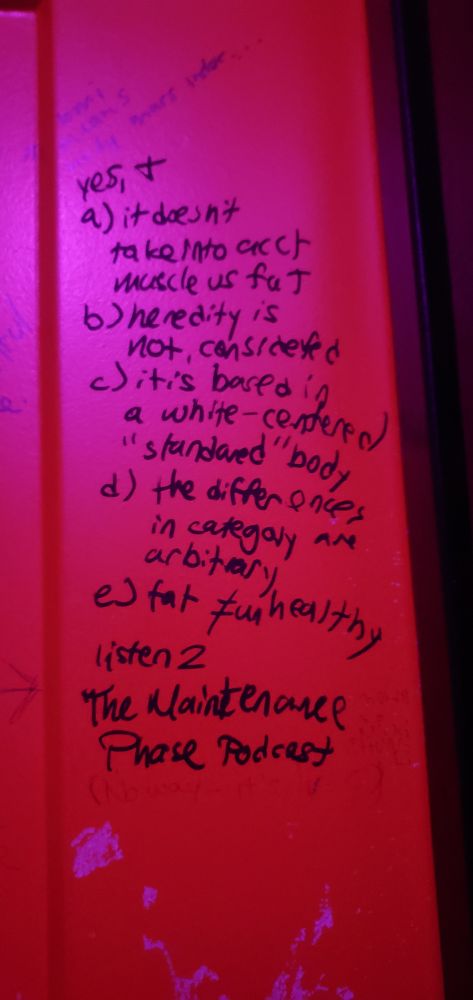 yes, +
a) it doesn't
take into acct
muscle vs fat
b) heredity is
not, considered
c) it is based in
a white-centered
"standared" body
d) the differences
in category are
arbitrary
e) fat ≠ unhealthy
listen 2
The Maintenance
Phase Podcast